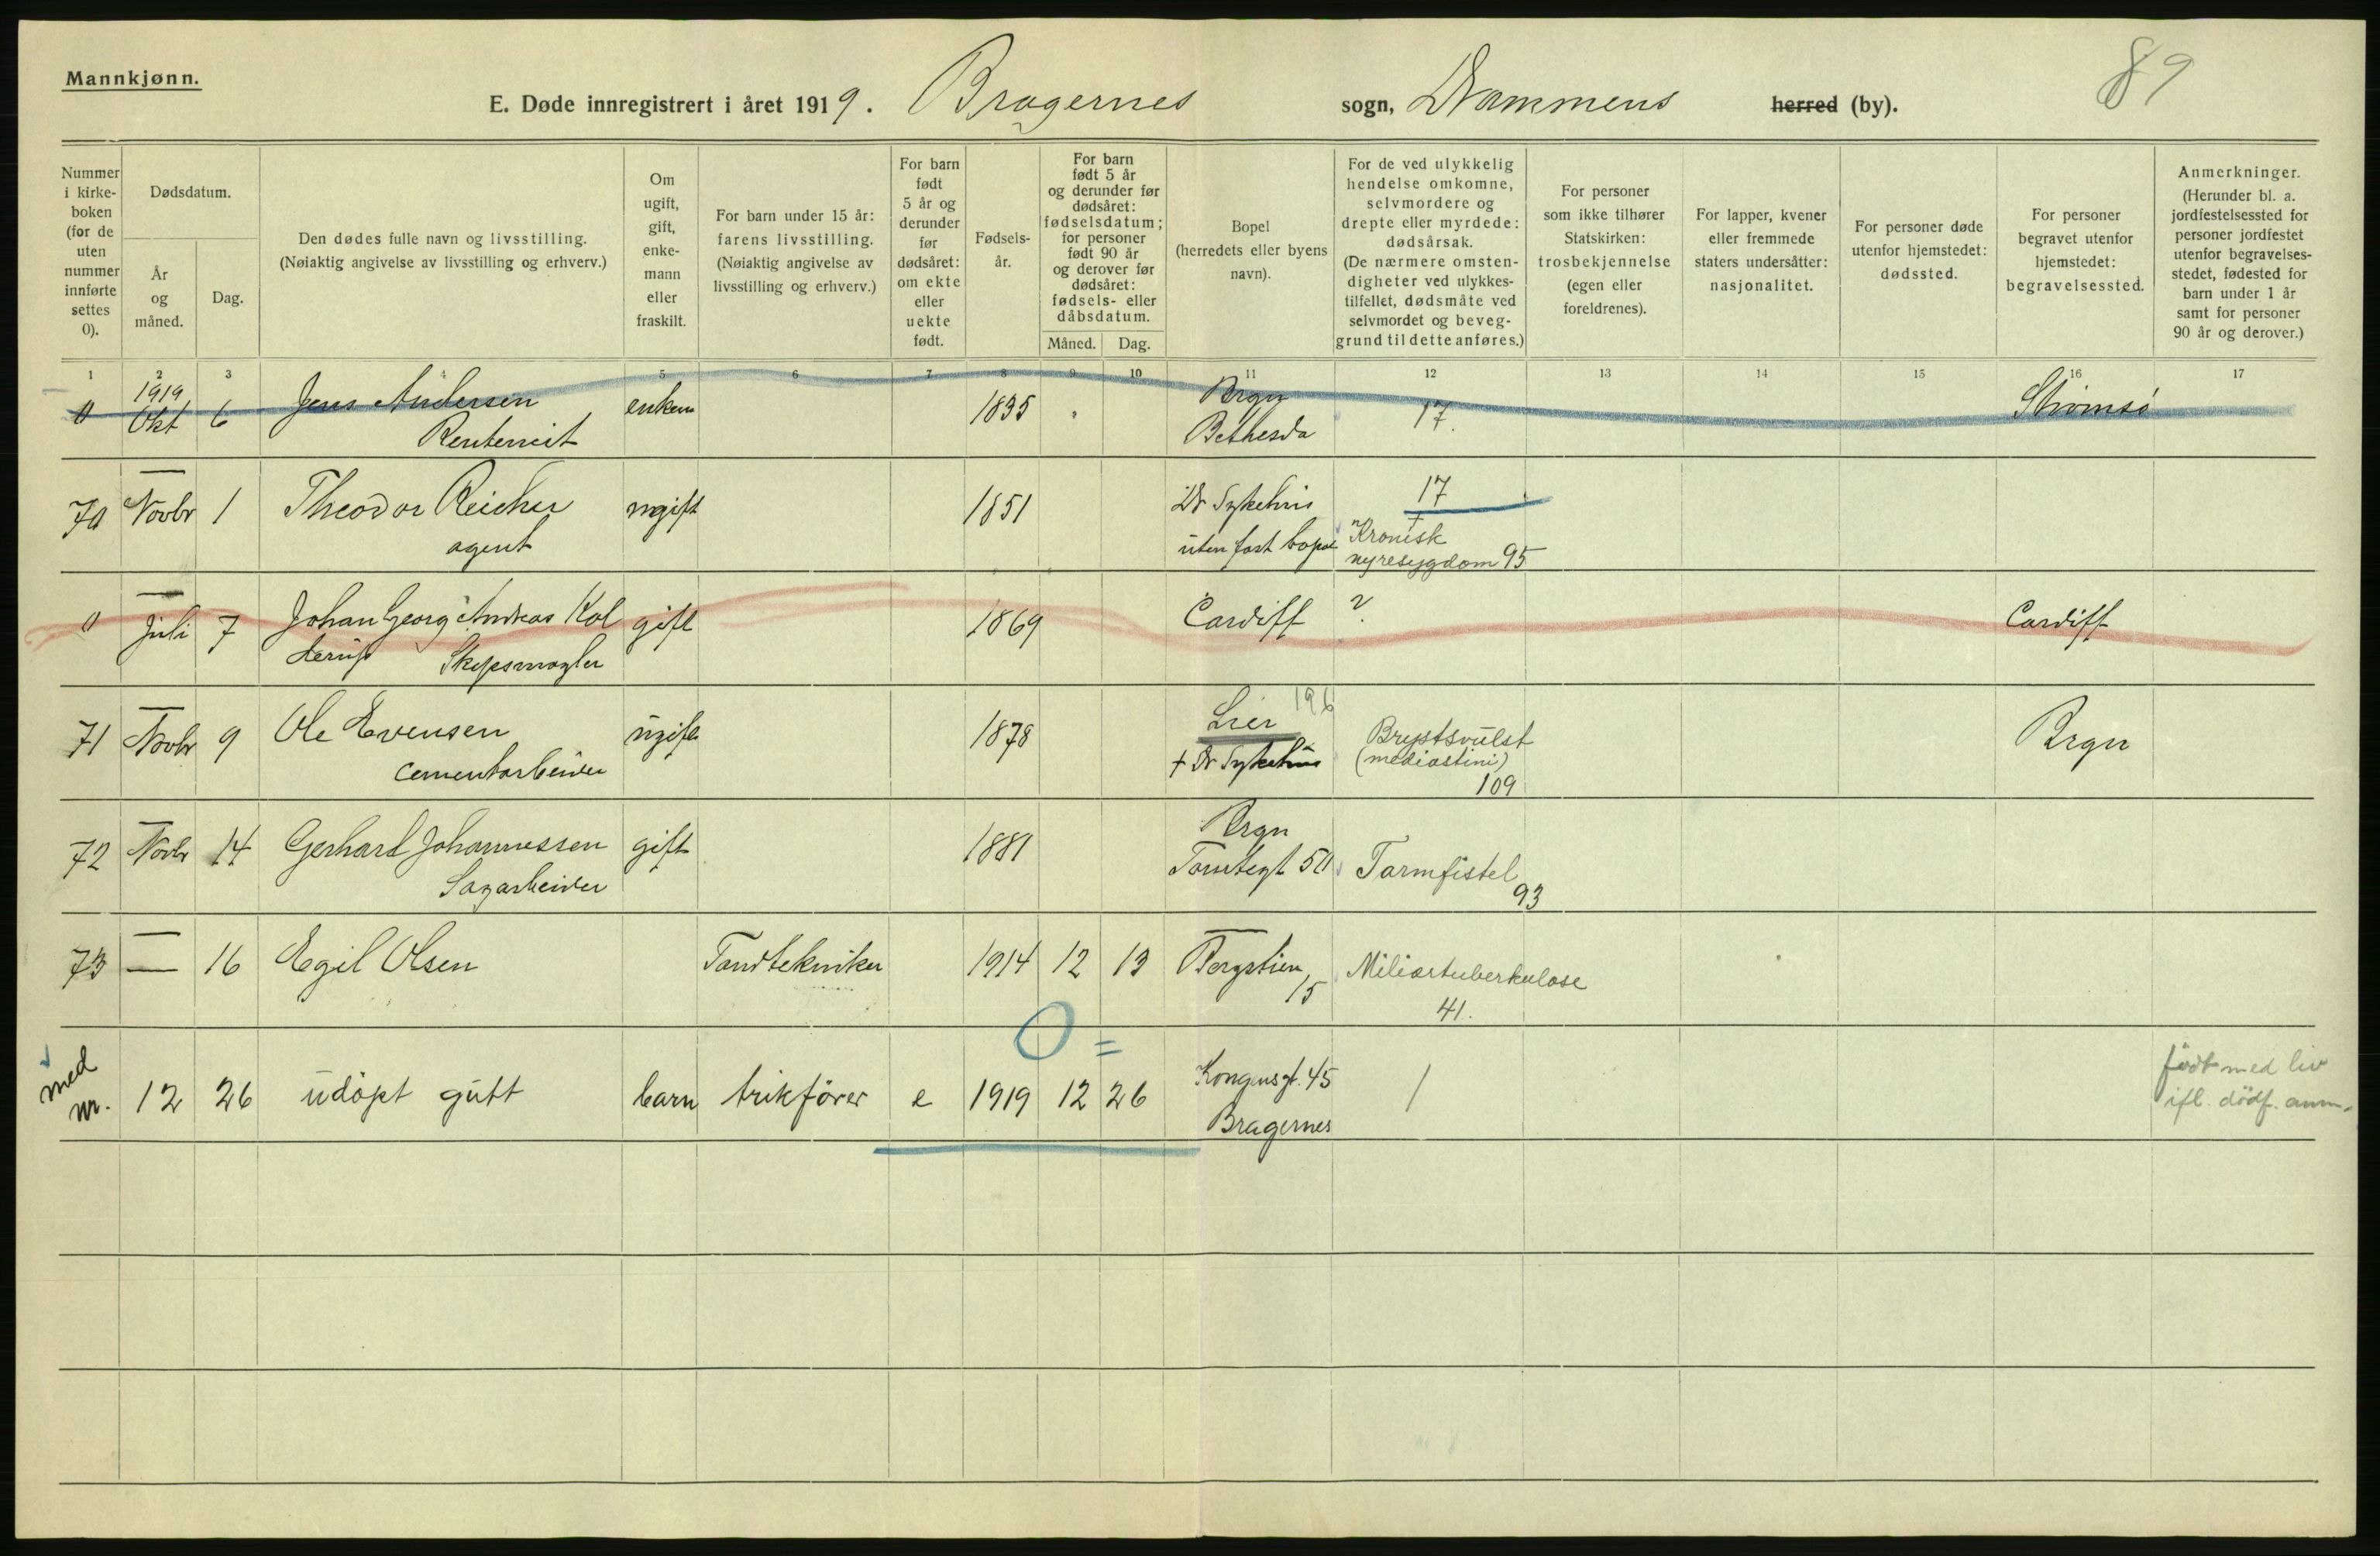 Mannkjønn.
89
E. Døde innregistrert i året 1919. Bragernes sogn, Drammens herred (by).
Nummer i kirke-boken (for de uten nummer innførte settes 0).
Dødsdatum.
År og måned.
Dag.
Den dødes fulle navn og livsstilling.
(Nøiaktig angivelse av livsstilling og erhverv.)
Om ugift, gift, enke-mann eller fraskilt.
For barn under 15 år: farens livsstilling. (Nøiaktig angivelse av livsstilling og erhverv.)
For barn født 5 år og derunder før dødsåret: om ekte eller uekte født.
Fødsels-år.
For barn født 5 år og derunder før dødsåret: fødselsdatum; for personer født 90 år og derover før dødsåret: fødsels- eller dåbsdatum.
Måned. Dag.
Bopel (herredets eller byens navn).
For de ved ulykkelig hendelse omkomne, selvmordere og drepte eller myrdede: dødsårsak. (De nærmere omsten-digheter ved ulykkes-tilfellet, dødsmåte ved selvmordet og beveg-grund til dette anføres.)
For personer som ikke tilhører Statskirken: trosbekjennelse (egen eller foreldrenes).
For lapper, kvener eller fremmede staters undersåtter: nasjonalitet.
For personer døde utenfor hjemstedet: dødssted.
For personer begravet utenfor hjemstedet: begravelsessted.
Anmerkninger. (Herunder bl. a. jordfestelsessted for personer jordfestet utenfor begravelses-stedet, fødested for barn under 1 år samt for personer 90 år og derover.)
1 2 3 4 5 6 7 8 9 10 11 12 13 14 15 16 17
1919
0 Okt 6 Jens Andersen enkem 1835 Brgn 17. Strømsø
Rentenist Bethesda
70 Novbr 1 Theodor Reicher ugift 1851 Dr Sykehus 17
agent uten fast bopæl Kronisk
nyresygdom 95
0 Juli 7 Johan Georg Andreas Kol gift 1869 Cardiff ? Cardiff
derup Skipsmægler
71 Novbr 9 Ole Evensen ugift 1878 Lier 196 Brystsvulst Brgn
cementarbeider + Dr Sykehus (mediastini)
109
72 Novbr 14 Gerhard Johannessen gift 1881 Brgn
Sagarbeider Tomtegt 50 Tarmfistel
93
73 — 16 Egil Olsen Tandtekniker 1914 12 13 Bergstien 15 Miliærtuberkulose
41.
0 =
med nr. 12 26 udøpt gutt barn trikfører e 1919 12 26 Kongensgt. 45 / født med liv
Bragernes ifl. dödf. anm.